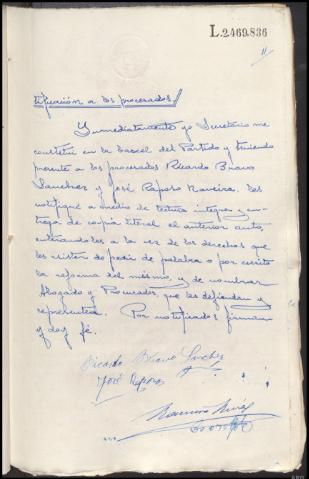 L.2469.836
11
tificación a los procesados/
Inmediatamente yo Secretario me
constituí en la Carcel del Partido y teniendo
presente a los procesados Ricardo Bravo
Sanchez y José Raposo Naveira, les
notifiqué a medio de lectura integra y en-
trega de copia literal el anterior auto,
enterandoles a la vez de los derechos que
les asisten de pedir de palabra o por escrito
la reforma del mismo, y de nombrar
Abogado y Procurador que les defiendan y
represente. Por notificados firman
y doy fé.
Ricardo Bravo Sanchez
José Raposo